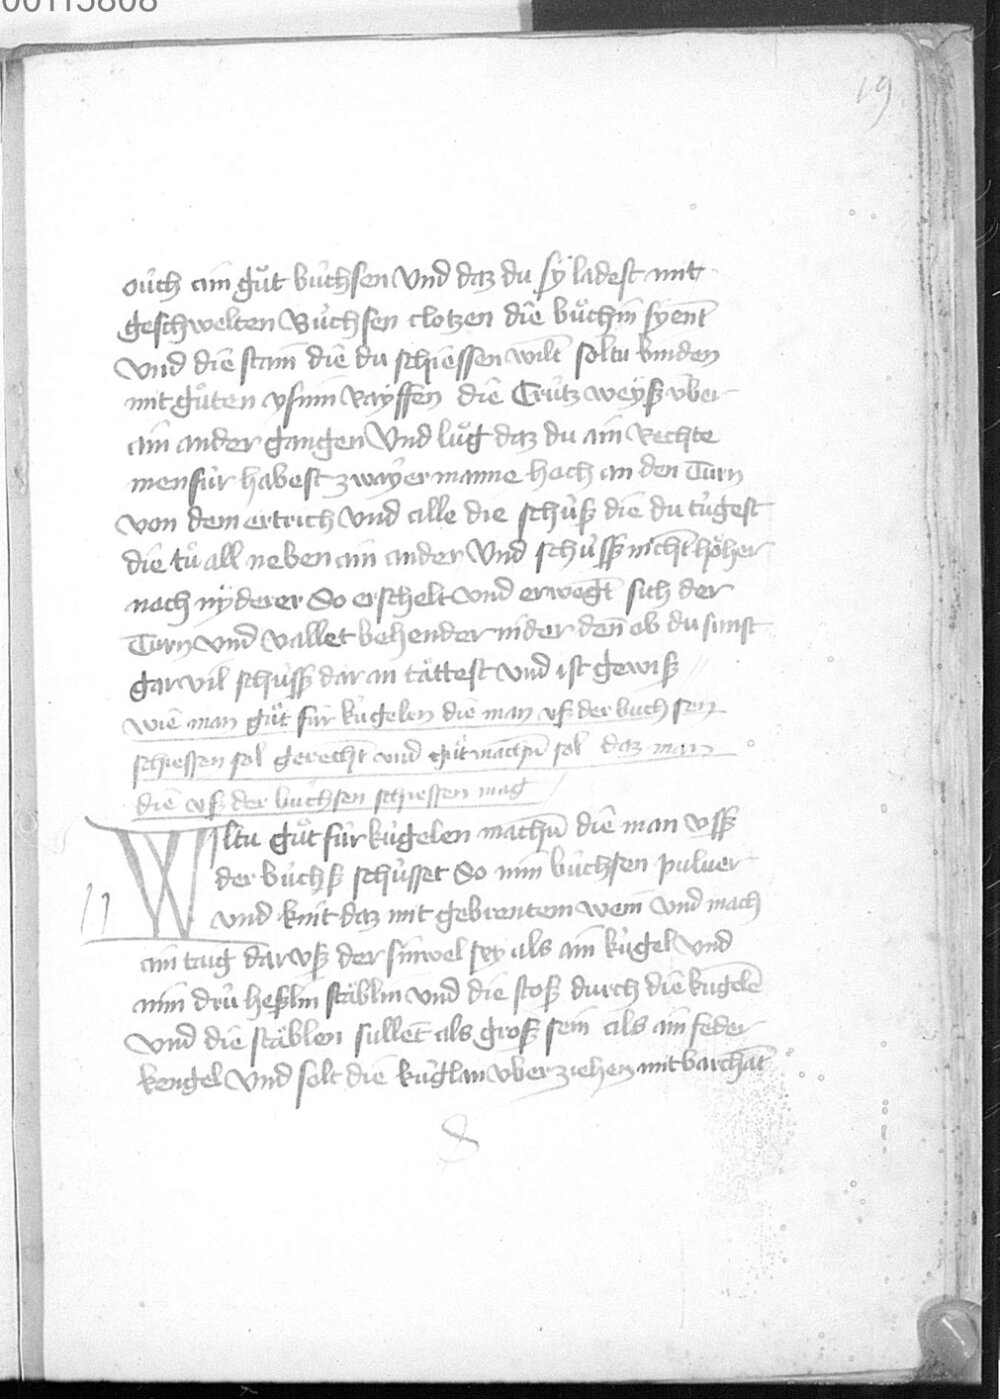 00115808
19
oůch ain gůt bůchsen Vnd daz du sy ladest mit
geschwelten Bůchsen clotzen die bůchin syent
Vnd die stain die du schiessen wilt soltu binden
mit gůten ysnin rayffen die Crůtz weyß vber
ain ander gangen Vnd lůg daz du ain Rechte
mensůr habest zwayer manne hoch an den Turn
von dem ertrich Vnd alle die schůß die du tůgest
die tů all neben ain ander Vnd schůss nicht höher
noch nyderer So erschelt vnd erwegt sich der
Turn vnd vallet behender nider den̄ ob du sunst
gar vil schůss dar an tättest vnd ist gewiß
Wie man gůt fůr kugelen die man vß der buchsen
schiessen sol gerecht vnd gůt mach̄n sol daz man
die vß der bůchsen schiessen mag
Wiltu gůt fůr kůgelen mach̄n die man vss
der bůchß schůsset So nim bůchsen puluer
vnd knit daz mit gebrentem wein Vnd mach
ain taig dar vß der sinwel sey als ain kůgel vnd
nim drů heßlin stäblin vnd die stoß durch die kugelē
Vnd die stäblen sullēt als groß sein als ain feder
kengel Vnd solt die kůglan vber ziehen mit barchāt